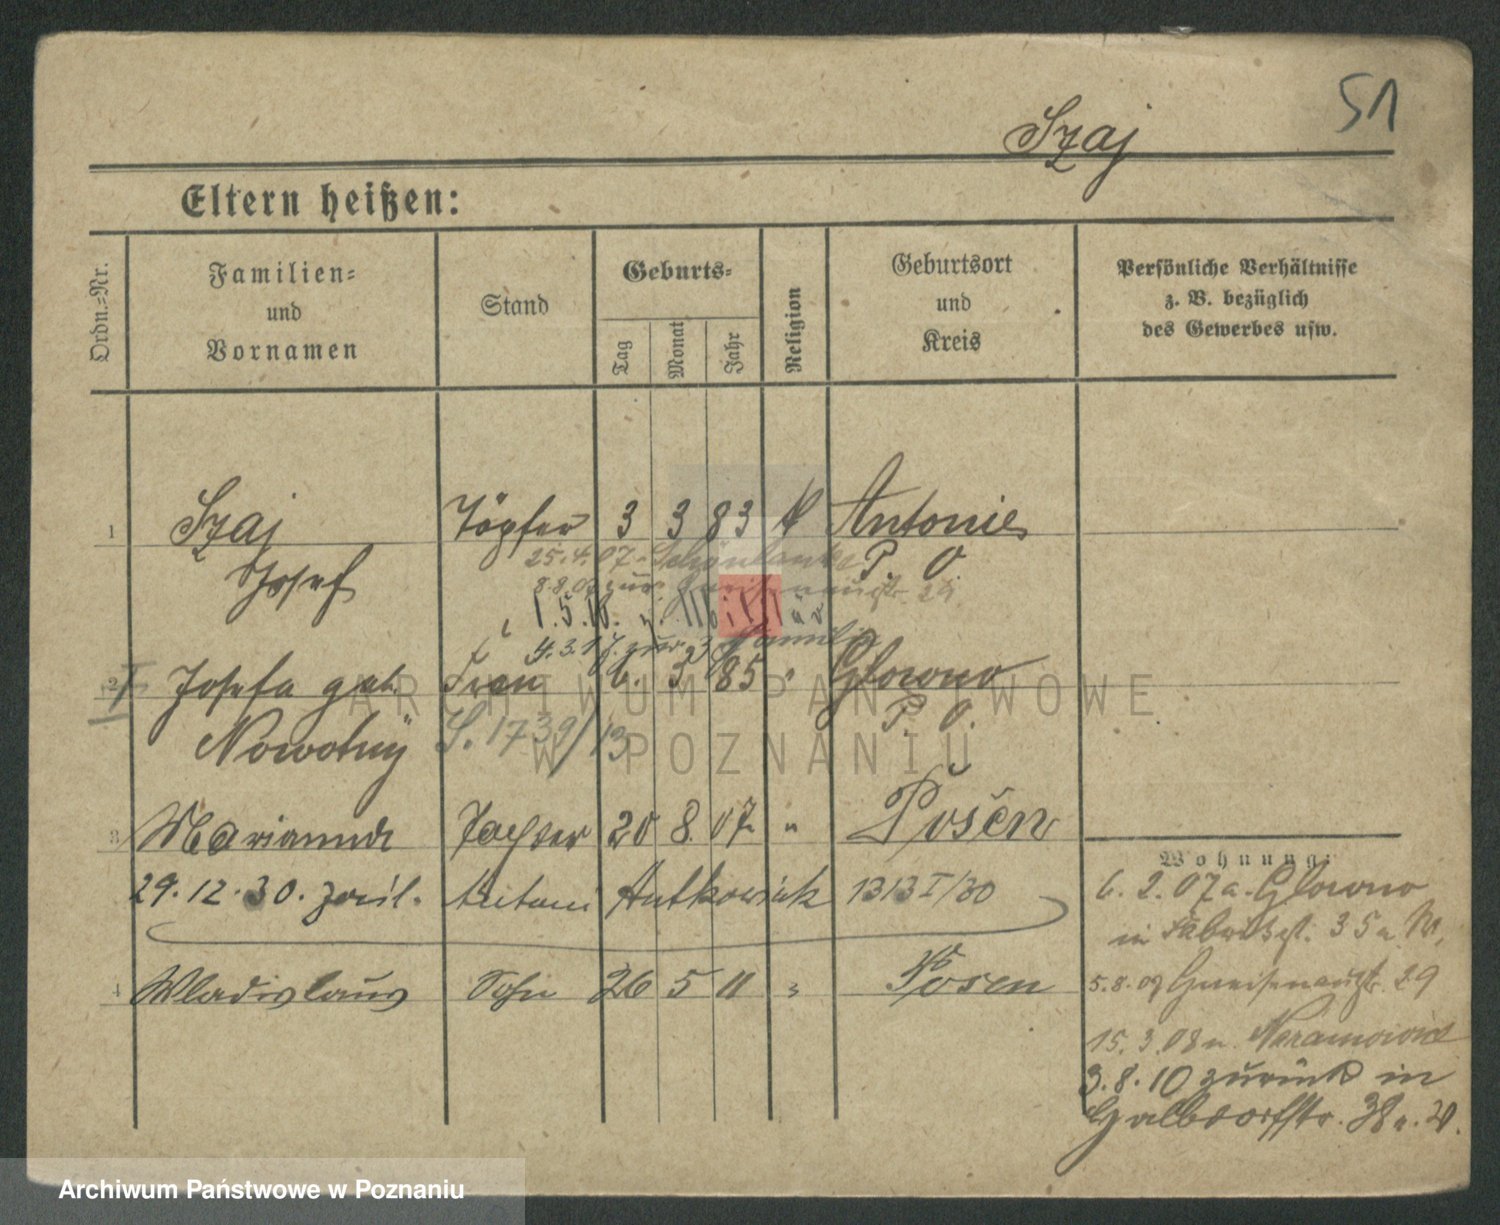 51
Szaj
Eltern heißen:
Ordn.-Nr.
Familien-
und
Vornamen
Stand
Geburts-
Tag
Monat
Jahr
Religion
Geburtsort
und
Kreis
Persönliche Verhältnisse
z. B. bezüglich
des Gewerbes usw.
1 Szaj Töpfer 3 3 83 Antonie
Josef P. O.
25.4.07
29
1.5.16. Militär
4.3.17. zur Familie
2 Josefa geb. Frau 6. 3 85 " Glowno
Nowotny P. O.
S. 1739/13
3 Marianna Tochter 20 8. 07. " Posen
29.12.30. Antoni Antkowiak 1313 I/30
4 Wladislaus Sohn 26 5 11 " Posen
Wohnung:
6. 2. 07 a. Glowno
in 35 a. W.
5.8.07 Gneisenaustr. 29
15. 3. 08 n. Naramowice
3. 8. 10 zurück in
38 a. W.
ARCHIWUM PAŃSTWOWE
W POZNANIU
Archiwum Państwowe w Poznaniu